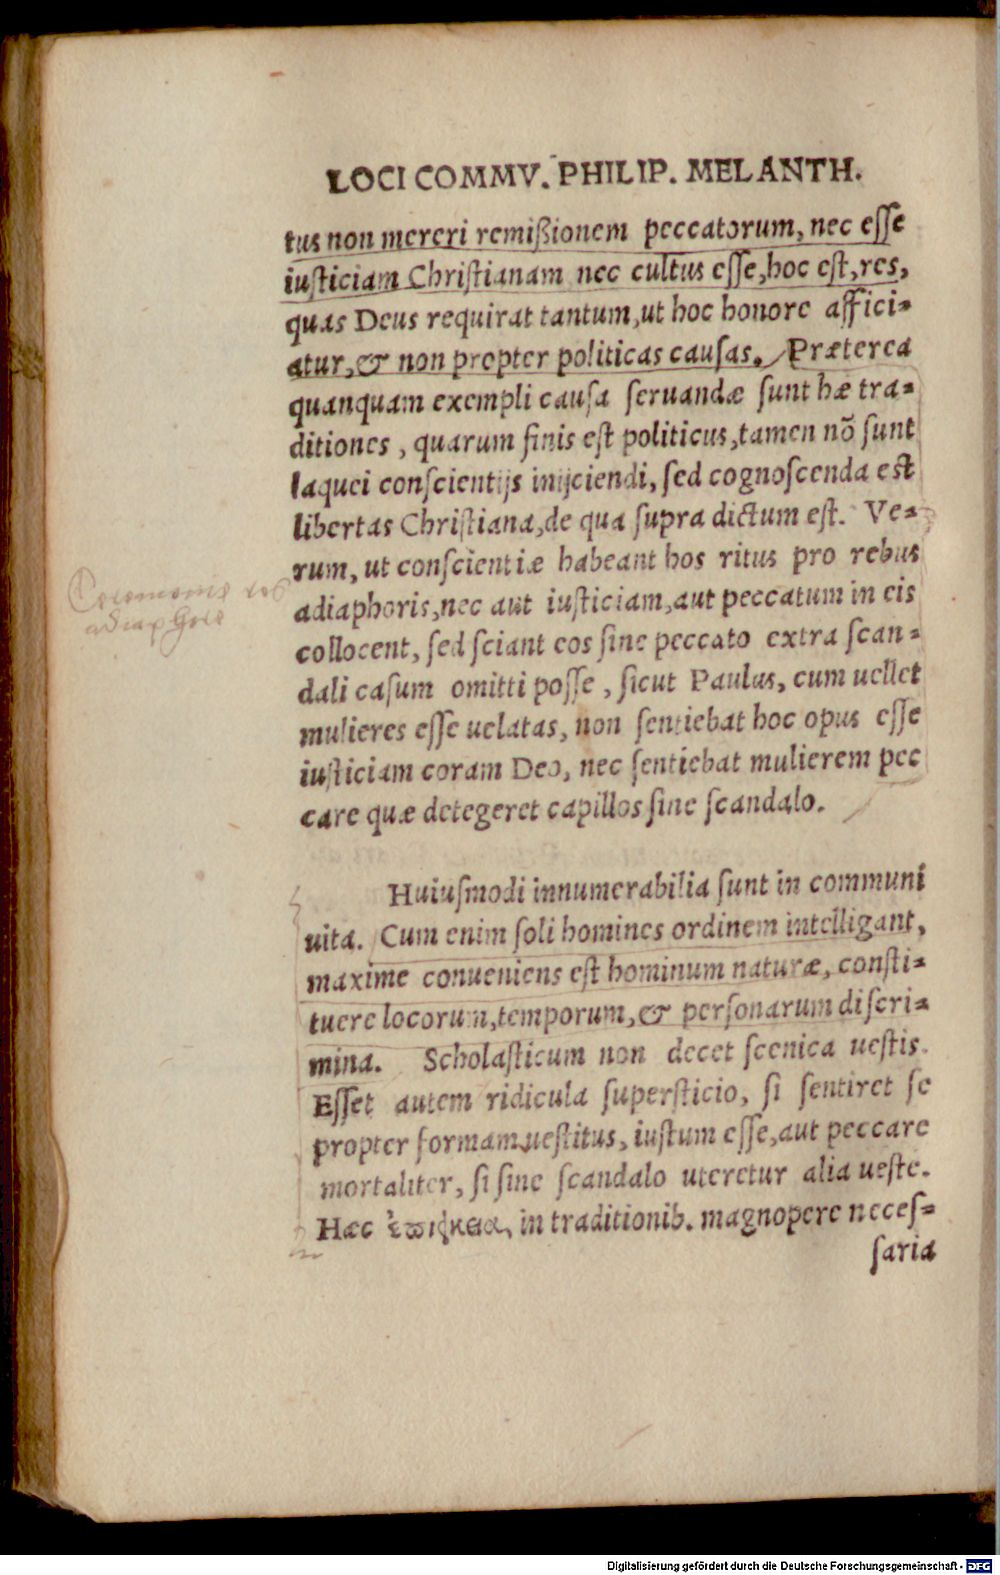 LOCI COMMV. PHILIP. MELANTH.
tus non mereri remißionem peccatorum, nec eſſe
iuſticiam Chriſtianam nec cultus eſſe, hoc eſt, res,
quas Deus requirat tantum, ut hoc honore affici-
atur, & non propter politicas cauſas. Præterea
quanquam exempli cauſa ſeruandæ ſunt hæ tra-
ditiones, quarum finis eſt politicus, tamen nõ ſunt
laquei conſcientijs inijciendi, ſed cognoſcenda eſt
libertas Chriſtiana, de qua ſupra dictum eſt. Ve-
rum, ut conſcientiæ habeant hos ritus pro rebus
adiaphoris, nec aut iuſticiam, aut peccatum in eis
collocent, ſed ſciant eos ſine peccato extra ſcan-
dali caſum omitti poſſe, ſicut Paulus, cum uellet
mulieres eſſe uelatas, non ſentiebat hoc opus eſſe
iuſticiam coram Deo, nec ſentiebat mulierem pec
care quæ detegeret capillos ſine ſcandalo.
Huiuſmodi innumerabilia ſunt in communi
uita. Cum enim ſoli homines ordinem intelligant,
maxime conueniens eſt hominum naturæ, conſti-
tuere locorum, temporum, & perſonarum diſcri-
mina. Scholaſticum non decet ſcenica ueſtis.
Eſſet autem ridicula ſuperſticio, ſi ſentiret ſe
propter formam ueſtitus, iuſtum eſſe, aut peccare
mortaliter, ſi ſine ſcandalo uteretur alia ueſte.
Hæc ἐπιείκεια, in traditionib. magnopere neceſ-
ſaria
Digitalisierung gefördert durch die Deutsche Forschungsgemeinschaft - DFG